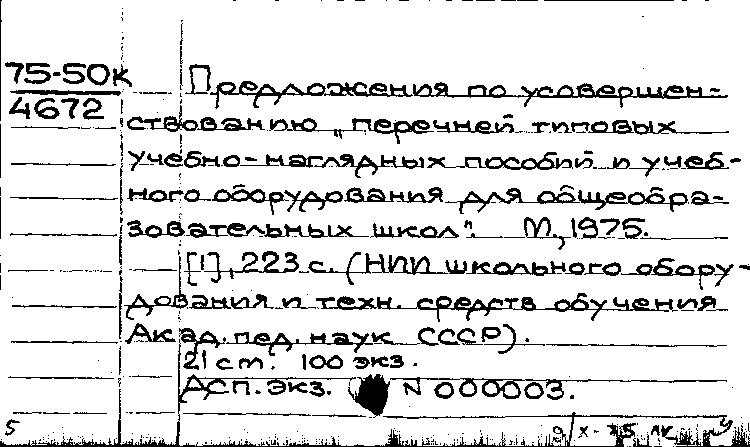 75-50к
4672
Предложения по усовершен-
ствованию „перечней типовых
учебно-наглядных пособий и учеб-
ного оборудования для общеобра-
зовательных школ". М., 1975.
[1], 223 с. (НИИ школьного обору-
дования и техн. средств обучения
Акад. пед. наук СССР).
21 см. 100 экз.
Дсп. экз. N 000003.
5
9/X-75